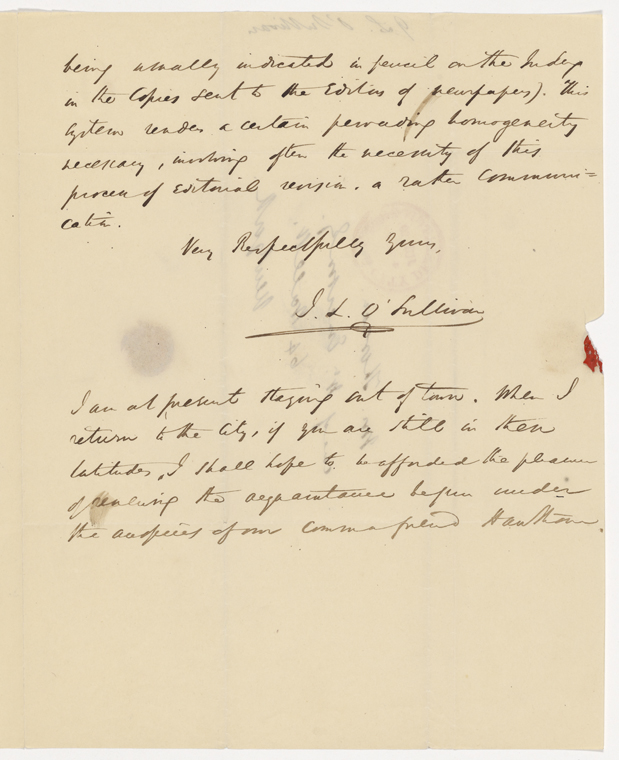 being usually indicated in pencil on the Index
in the Copies sent to the Editors of newspapers). This
system renders a certain pervading homogeneity
necessary, involving often the necessity of this
process of Editorial revision. a rather Communi=
cation.
Very Respectfully Yours,
J. L. O'Sullivan
I am at present staying out of town. When I
return to the City, if you are still in these
latitudes, I shall hope to be afforded the pleasure
of renewing the acquaintance begun under
the auspices of our common friend Hawthorne.